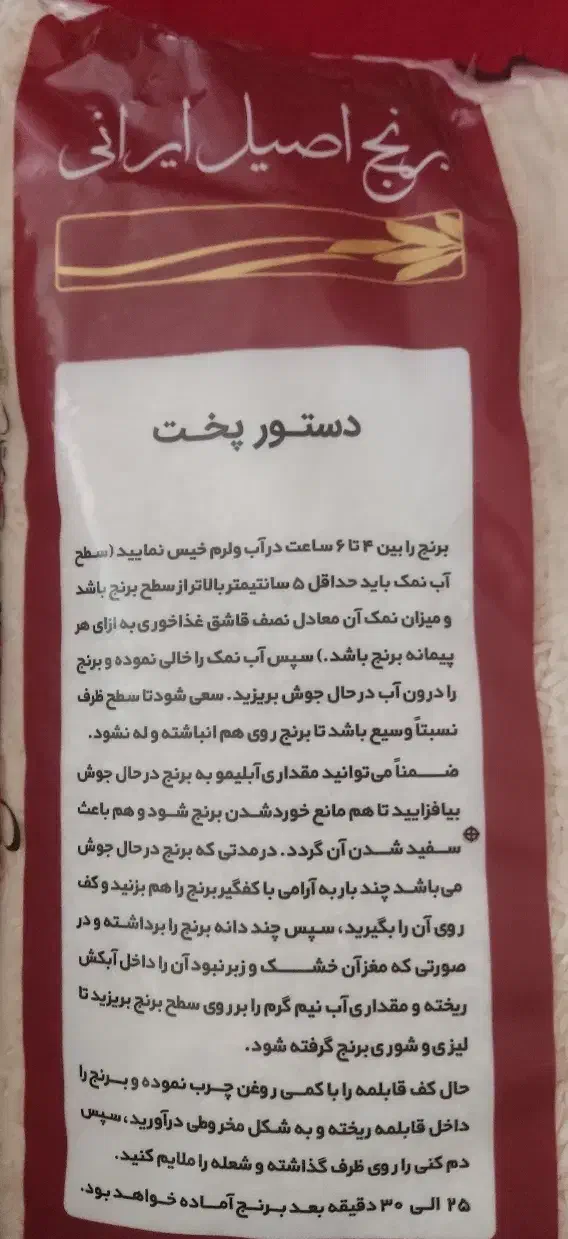 برنج اصیل ایرانی
دستور پخت
برنج را بین ۴ تا ۶ ساعت در آب ولرم خیس نمایید (سطح
آب نمک باید حداقل ۵ سانتیمتر بالاتر از سطح برنج باشد
و میزان نمک آن معادل نصف قاشق غذاخوری به ازای هر
پیمانه برنج باشد.) سپس آب نمک را خالی نموده و برنج
را درون آب در حال جوش بریزید. سعی شود تا سطح ظرف
نسبتاً وسیع باشد تا برنج روی هم انباشته و له نشود.
ضمناً می‌توانید مقداری آبلیمو به برنج در حال جوش
بیافزایید تا هم مانع خوردشدن برنج شود و هم باعث
سفید شدن آن گردد. در مدتی که برنج در حال جوش
می‌باشد چند بار به آرامی با کفگیر برنج را هم بزنید و کف
روی آن را بگیرید، سپس چند دانه برنج را برداشته و در
صورتی که مغز آن خشک و زبر نبود آن را داخل آبکش
ریخته و مقداری آب نیم گرم را بر روی سطح برنج بریزید تا
لیزی و شوری برنج گرفته شود.
حال کف قابلمه را با کمی روغن چرب نموده و برنج را
داخل قابلمه ریخته و به شکل مخروطی درآورید، سپس
دم کنی را روی ظرف گذاشته و شعله را ملایم کنید.
۲۵ الی ۳۰ دقیقه بعد برنج آماده خواهد بود.